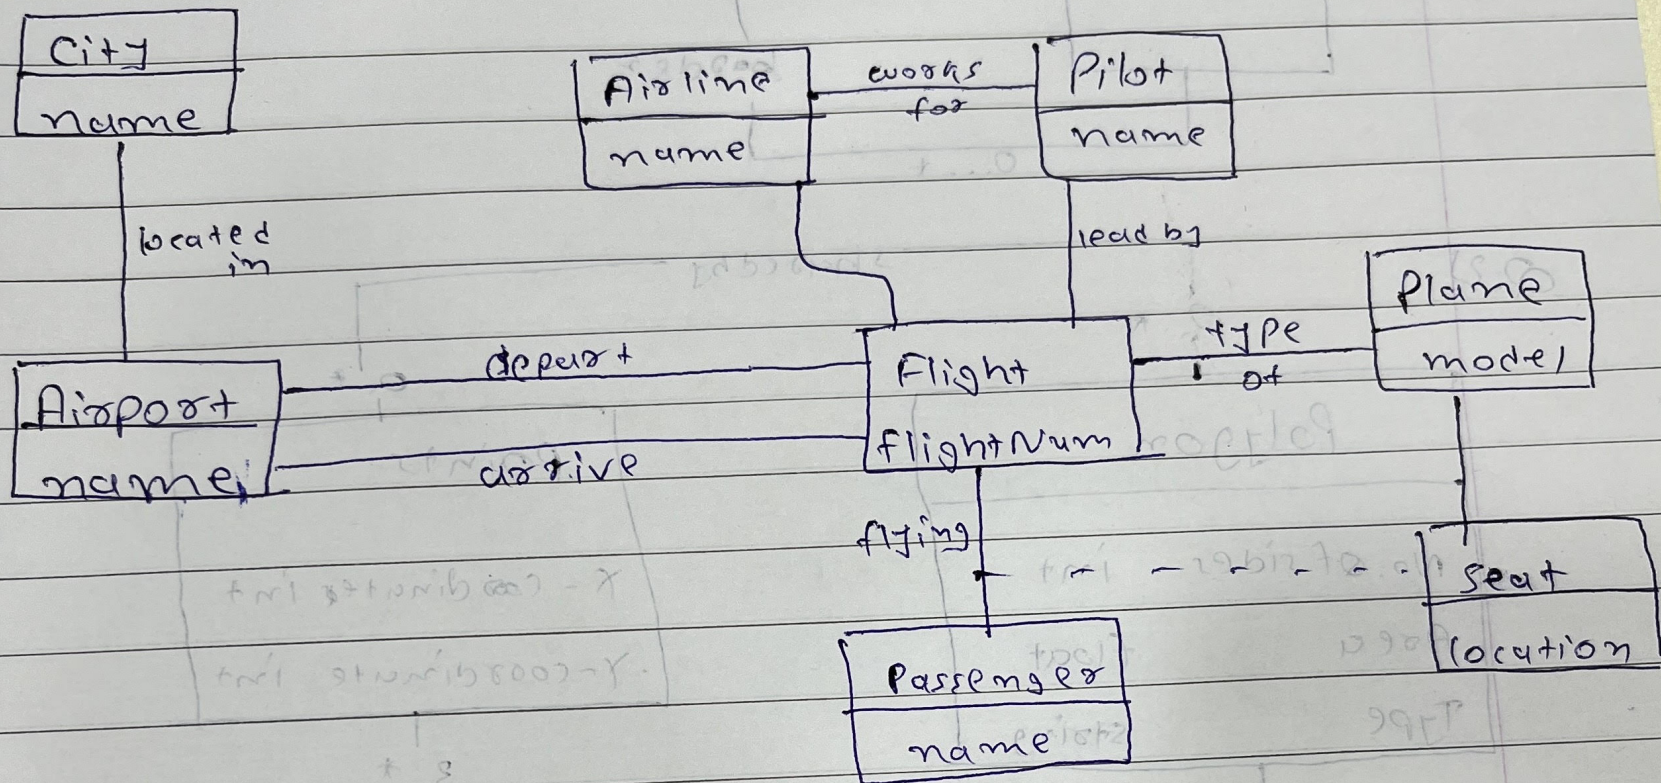 City
name
Airline
name
works
for
Pilot
name
located
in
lead by
Plane
model
Airport
name
depart
arrive
Flight
flightNum
type
of
flying
seat
location
Passenger
name